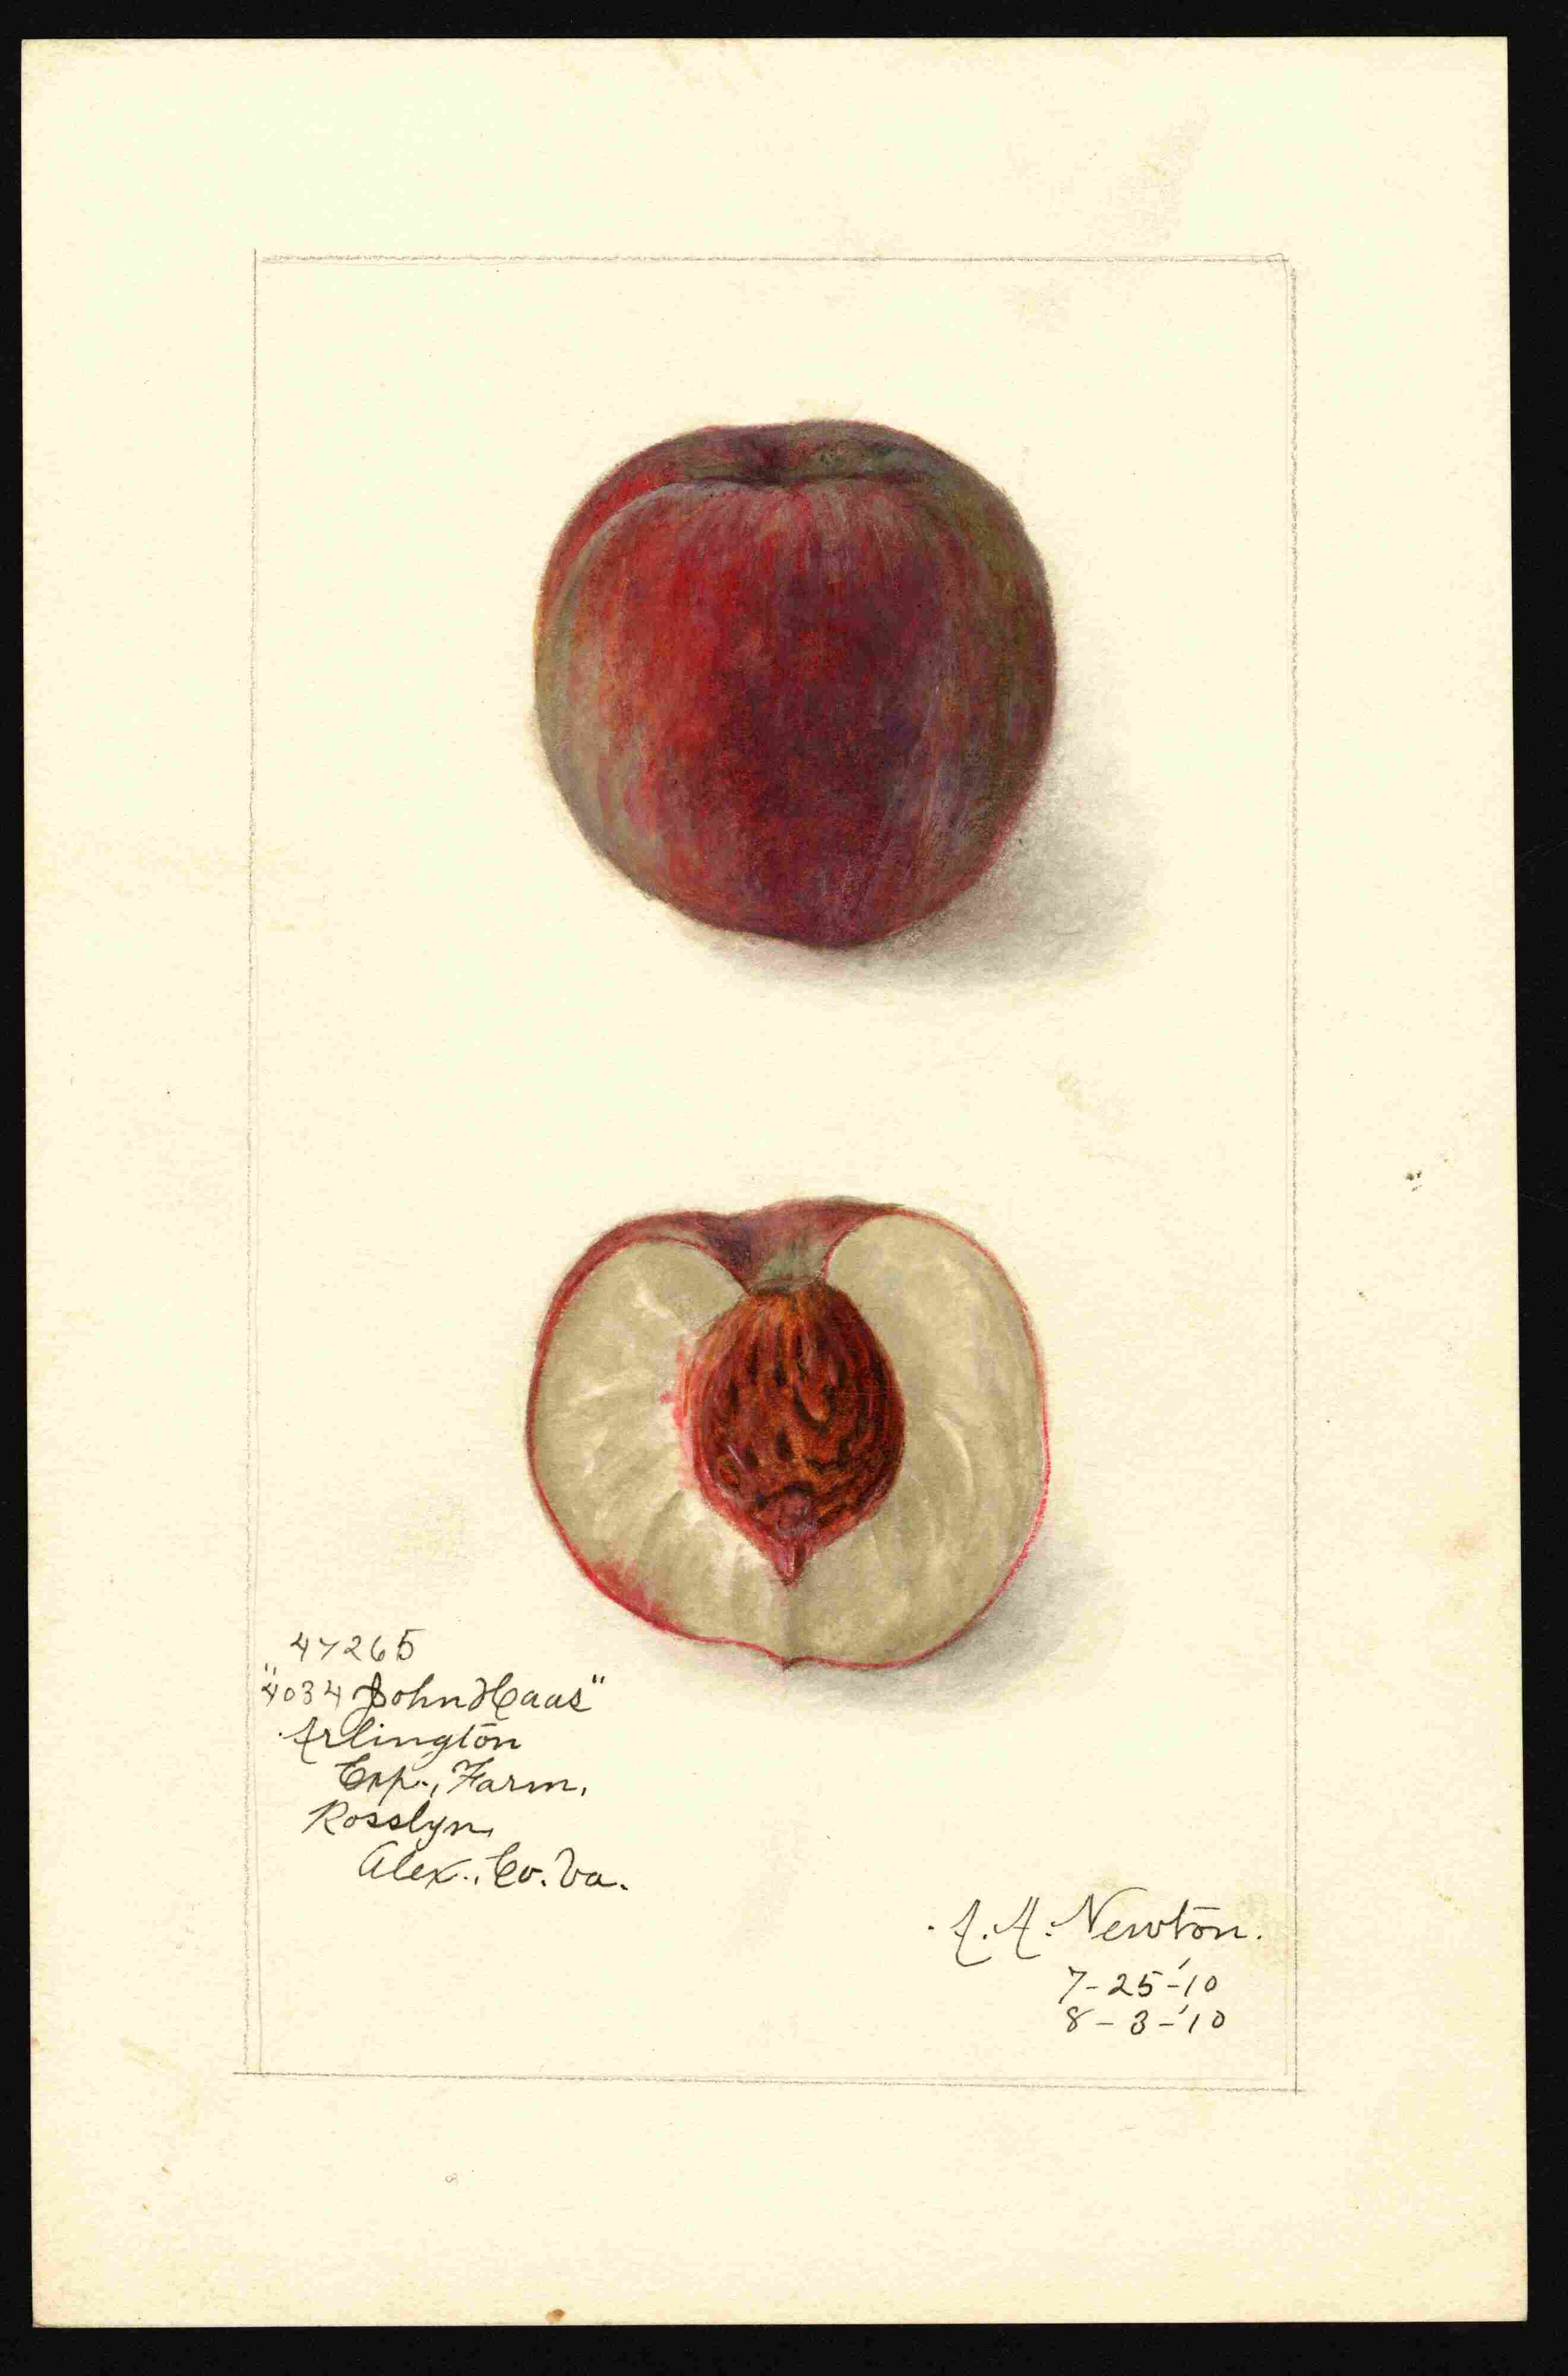 47265
"4034 John Haas"
Arlington
Exp., Farm,
Rosslyn,
Alex., Co. Va.
A. A. Newton.
7-25-'10
8-3-'10